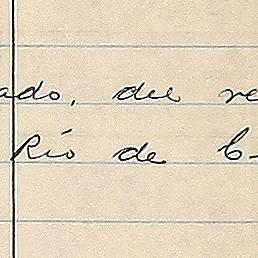 ado, del re
Rio de